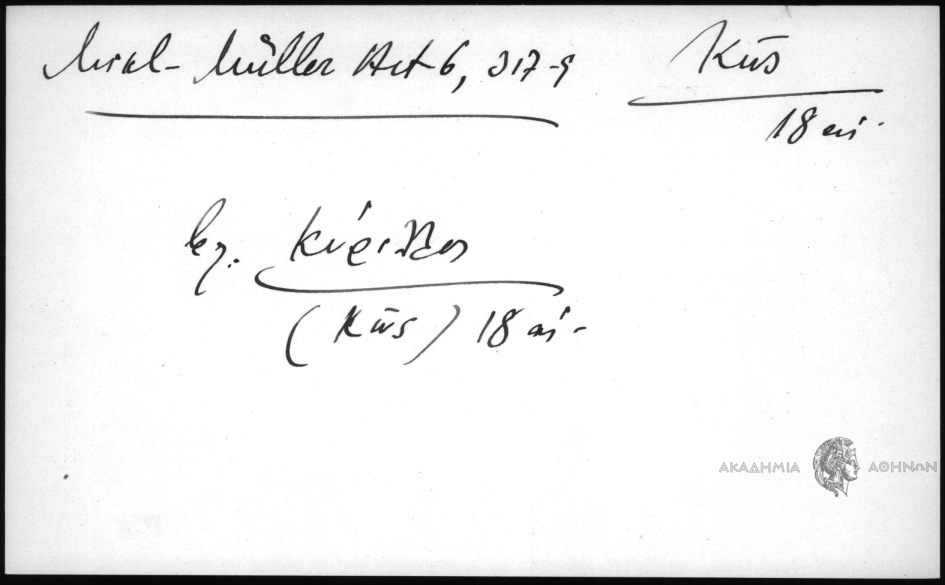 Mikl-Müller Act 6, 317-9
Κῶς
18 αἰ.
λγ. Κύριλλος
(Κῶς) 18 αἰ.
ΑΚΑΔΗΜΙΑ ΑΘΗΝΩΝ